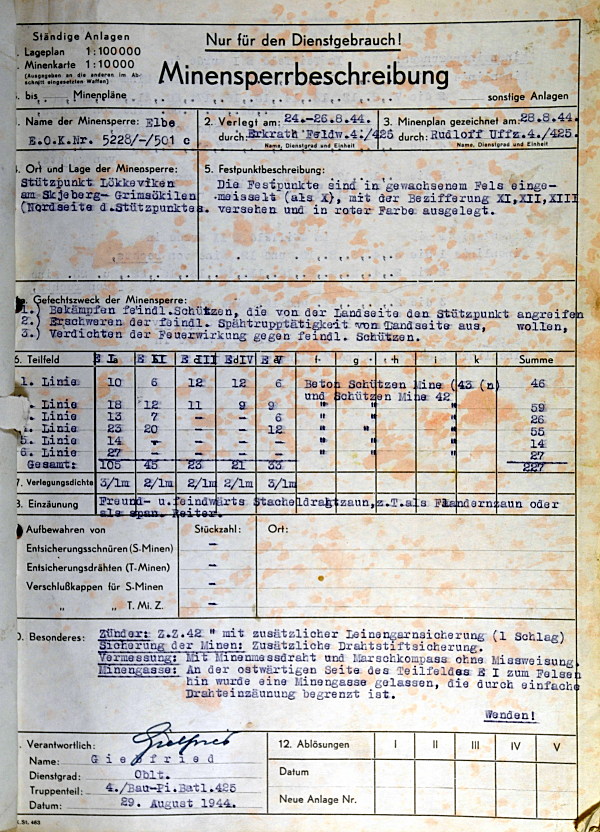 Ständige Anlagen
Lageplan 1:100000
Minenkarte 1:10000
(Ausgegeben an die anderen im Abschnitt eingesetzten Waffen)
bis Minenpläne
Nur für den Dienstgebrauch!
Minensperrbeschreibung
sonstige Anlagen
Name der Minensperre: Elbe
E.O.K.Nr. 5228/-/501 c
2. Verlegt am: 24.-26.8.44.
durch: Erkrath Feldw.4./425
Name, Dienstgrad und Einheit
3. Minenplan gezeichnet am: 28.8.44.
durch: Rudloff Uffz.4./425.
Name, Dienstgrad und Einheit
Ort und Lage der Minensperre:
Stützpunkt Lökkeviken
am Skjeberg- Grimsökilen
(Nordseite d.Stützpunktes.
5. Festpunktbeschreibung:
Die Festpunkte sind in gewachsenem Fels einge-
meisselt (als X), mit der Bezifferung XI,XII,XIII
versehen und in roter Farbe ausgelegt.
Gefechtszweck der Minensperre:
1.) Bekämpfen feindl.Schützen, die von der Landseite den Stützpunkt angreifen
2.) Erschweren der feindl. Spähtrupptätigkeit von Landseite aus, wollen,
3.) Verdichten der Feuerwirkung gegen feindl. Schützen.
6. Teilfeld E I a E II E d III E d IV E V f g h i k Summe
1. Linie 10 6 12 12 6 Beton Schützen Mine (43 (n) 46
und Schützen Mine 42
Linie 18 12 11 9 9 " " " 59
Linie 13 7 - - 6 " " " 26
Linie 23 20 - - 12 " " " 55
Linie 14 - - - - " " " 14
6. Linie 27 - - - - " " " 27
Gesamt: 105 45 23 21 33 227
7. Verlegungsdichte 3/1m 2/1m 2/1m 2/1m 3/1m
8. Einzäunung Freund- u.feindwärts Stacheldrahtzaun,z.T.als Flandernzaun oder
als span. Reiter.
Aufbewahren von Stückzahl: Ort:
Entsicherungsschnüren (S-Minen) -
Entsicherungsdrähten (T-Minen) -
Verschlußkappen für S-Minen -
" " T. Mi. Z. -
Besonderes: Zünder: Z.Z.42 " mit zusätzlicher Leinengarnsicherung (1 Schlag)
Sicherung der Minen: Zusätzliche Drahtstiftsicherung.
Vermessung: Mit Minenmessdraht und Marschkompass ohne Missweisung.
Minengasse: An der ostwärtigen Seite des Teilfeldes E I zum Felsen
hin wurde eine Minengasse gelassen, die durch einfache
Drahteinzäunung begrenzt ist.
Wenden!
Verantwortlich:
Name: Giepfried
Dienstgrad: Oblt.
Truppenteil: 4./Bau-Pi.Batl.425
Datum: 29. August 1944.
12. Ablösungen I II III IV V
Datum
Neue Anlage Nr.